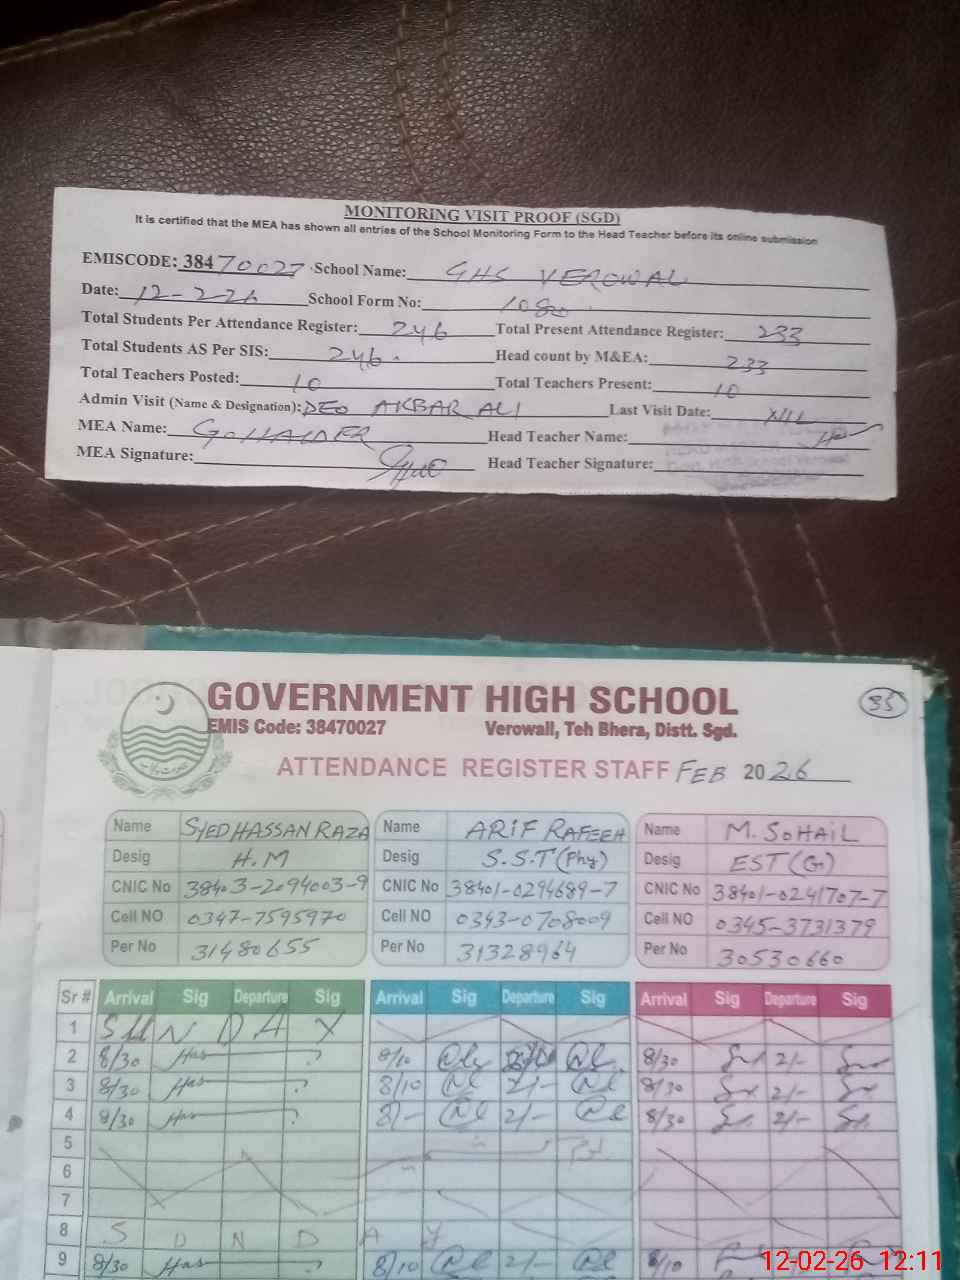 MONITORING VISIT PROOF (SGD)
It is certified that the MEA has shown all entries of the School Monitoring Form to the Head Teacher before its online submission
EMISCODE: 38470027 School Name: GHS VEROWAL
Date: 12-2-26 School Form No: 1080
Total Students Per Attendance Register: 246 Total Present Attendance Register: 233
Total Students AS Per SIS: 246. Head count by M&EA: 233
Total Teachers Posted: 10 Total Teachers Present: 10
Admin Visit (Name & Designation): DEO AKBAR ALI Last Visit Date: XIII
MEA Name: Head Teacher Name:
MEA Signature: Head Teacher Signature:
GOVERNMENT HIGH SCHOOL 35
EMIS Code: 38470027 Verowall, Teh Bhera, Distt. Sgd.
ATTENDANCE REGISTER STAFF FEB 2026
Name SYED HASSAN RAZA Name ARIF RAFEEH Name M. SOHAIL
Desig H.M Desig S.S.T (Phy) Desig EST (G)
CNIC No 38403-2094003-9 CNIC No 38401-0294689-7 CNIC No 38401-0241707-7
Cell NO 0347-7595970 Cell NO 0343-0708009 Cell NO 0345-3731379
Per No 31480655 Per No 31328964 Per No 30530660
Sr # Arrival Sig Departure Sig Arrival Sig Departure Sig Arrival Sig Departure Sig
1 SUNDAY
2 8/30 Has 8/10 8/30 2/-
3 8/30 Has 8/10 2/- 8/30 2/-
4 8/30 Has 8/- 2/- 8/30 2/-
5
6
7
8 SUNDAY
9 8/30 Has 8/10 2/- 8/10
12-02-26 12:11